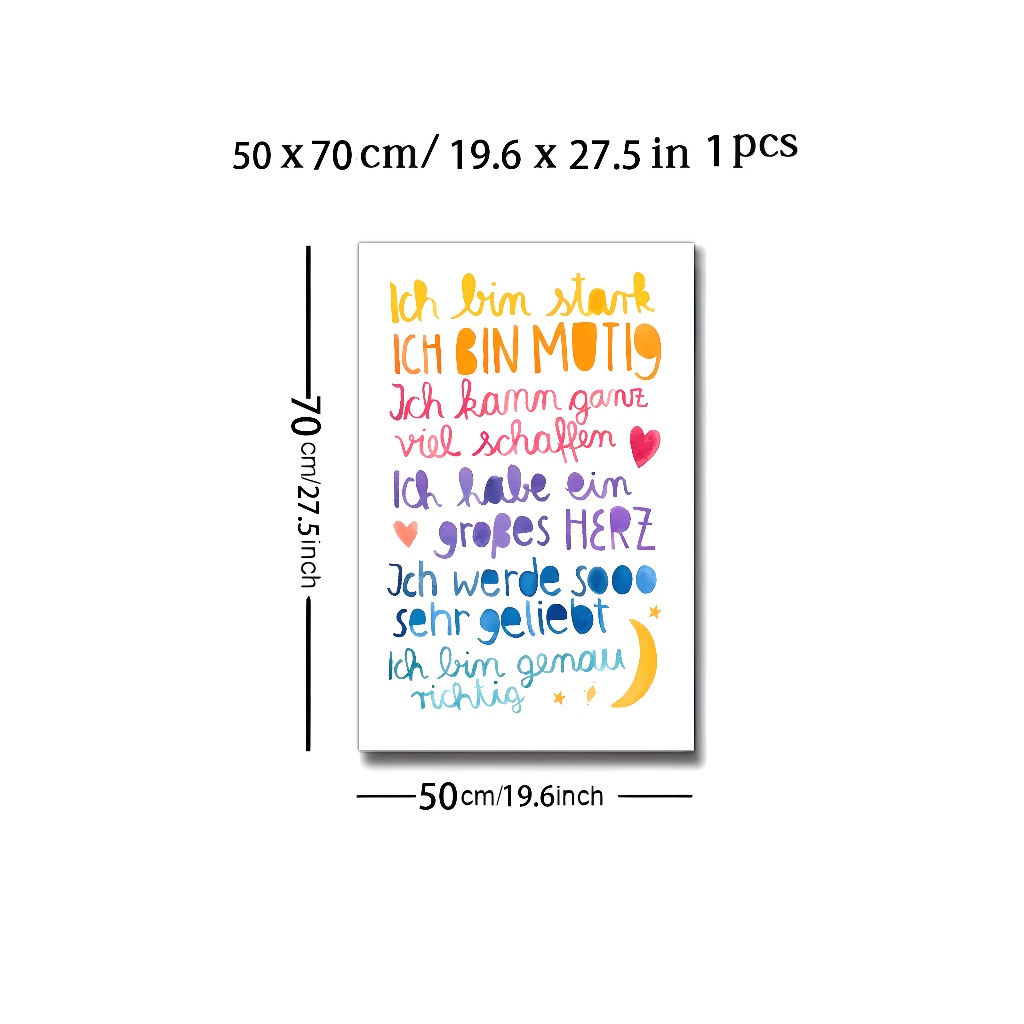 50 x 70 cm/ 19.6 x 27.5 in 1 pcs
70 cm/27.5 inch
Ich bin stark
ICH BIN MUTIG
Ich kann ganz
viel schaffen
Ich habe ein
großes HERZ
Ich werde sooo
sehr geliebt
Ich bin genau
richtig
50 cm/19.6 inch